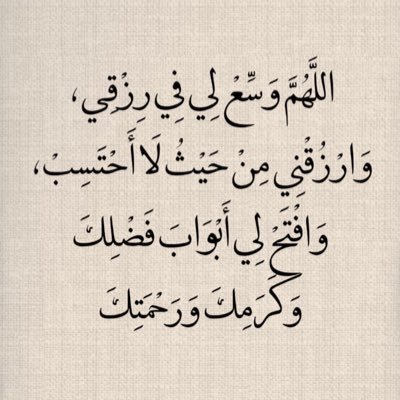 اللَّهُمَّ وَسِّعْ لِي فِي رِزْقِي،
وَارْزُقْنِي مِنْ حَيْثُ لَا أَحْتَسِبْ،
وَافْتَحْ لِي أَبْوَابَ فَضْلِكَ
وَكَرَمِكَ وَرَحْمَتِكَ